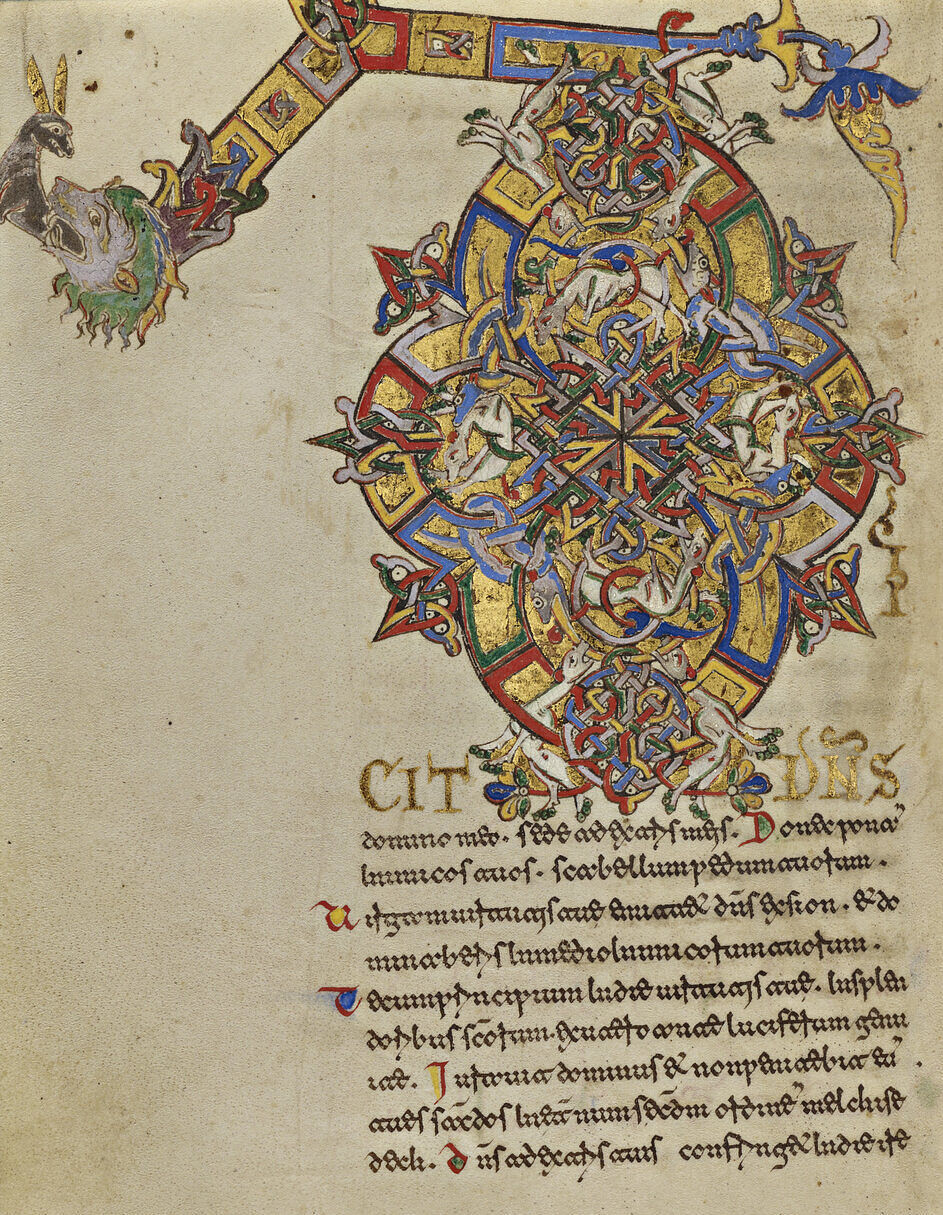 CIT DN̄S
domino meo. sede adextris meis. Donec ponā
inimicos tuos. scabellum pedum tuorum.
Uirgam uirtutis tue emittet dn̄s exsion. et do
minaberis inmedio inimicorum tuorum.
Tecum principium indie uirtutis tue. insplen
doribus sc̄orum. exutero ante luciferum genui
te. Iurauit dominus et nonpenitebit eū.
tu es sacerdos inetērnum secd̄m ordinē melchise
dech. Dn̄s adextris tuis confringet indie ire